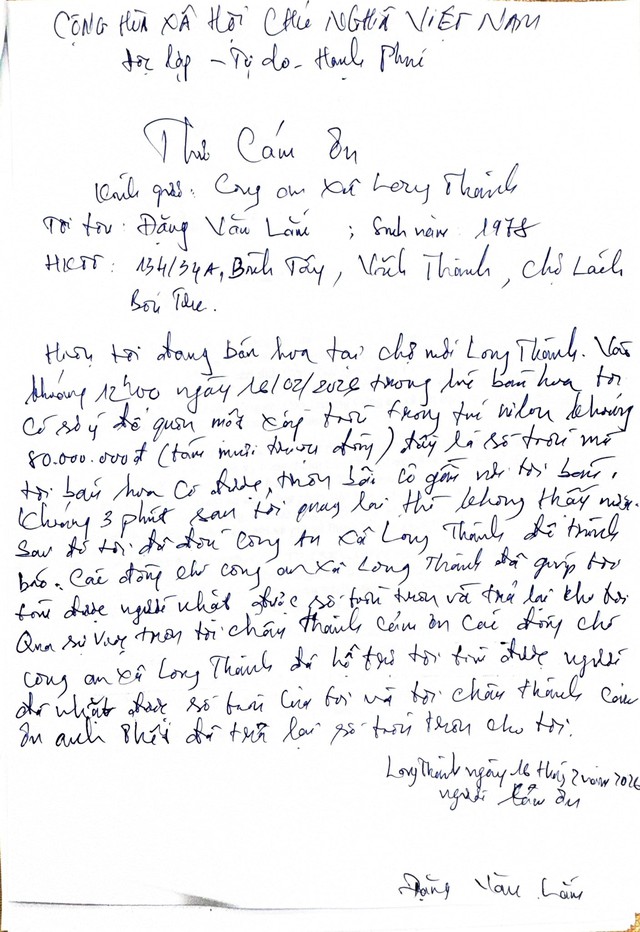 CỘNG HÒA XÃ HỘI CHỦ NGHĨA VIỆT NAM
Độc lập - Tự do - Hạnh Phúc
Thư Cám Ơn
Kính gửi: Công an xã Long Thành
Tôi tên: Đặng Văn Lắm ; Sinh năm: 1978
HKTT: 134/34A, Bình Tây, Vĩnh Thành, Chợ Lách
Bến Tre.
Hiện tôi đang bán hoa tại chợ mới Long Thành. Vào
khoảng 12h00 ngày 16/02/2026 trong lúc bán hoa tôi
có sơ ý để quên một tiền trong túi nilon khoảng
80.000.000đ (tám mươi triệu đồng) đây là số tiền mà
tôi bán hoa có được, trên bãi cỏ gần nơi tôi bán.
Khoảng 3 phút sau tôi quay lại thì không thấy nữa.
Sau đó tôi đã đến Công an Xã Long Thành để trình
báo. Các đồng chí công an xã Long Thành đã giúp tôi
tìm được người nhặt được số tiền trên và trả lại cho tôi
Qua sự việc trên tôi chân thành cám ơn các đồng chí
công an xã Long Thành đã hỗ trợ tôi tìm được người
đã nhặt được số tiền của tôi và tôi chân thành cám
ơn anh đã trả lại số tiền trên cho tôi.
Long Thành ngày 16 tháng 2 năm 2026
người cám ơn
Đặng Văn Lắm